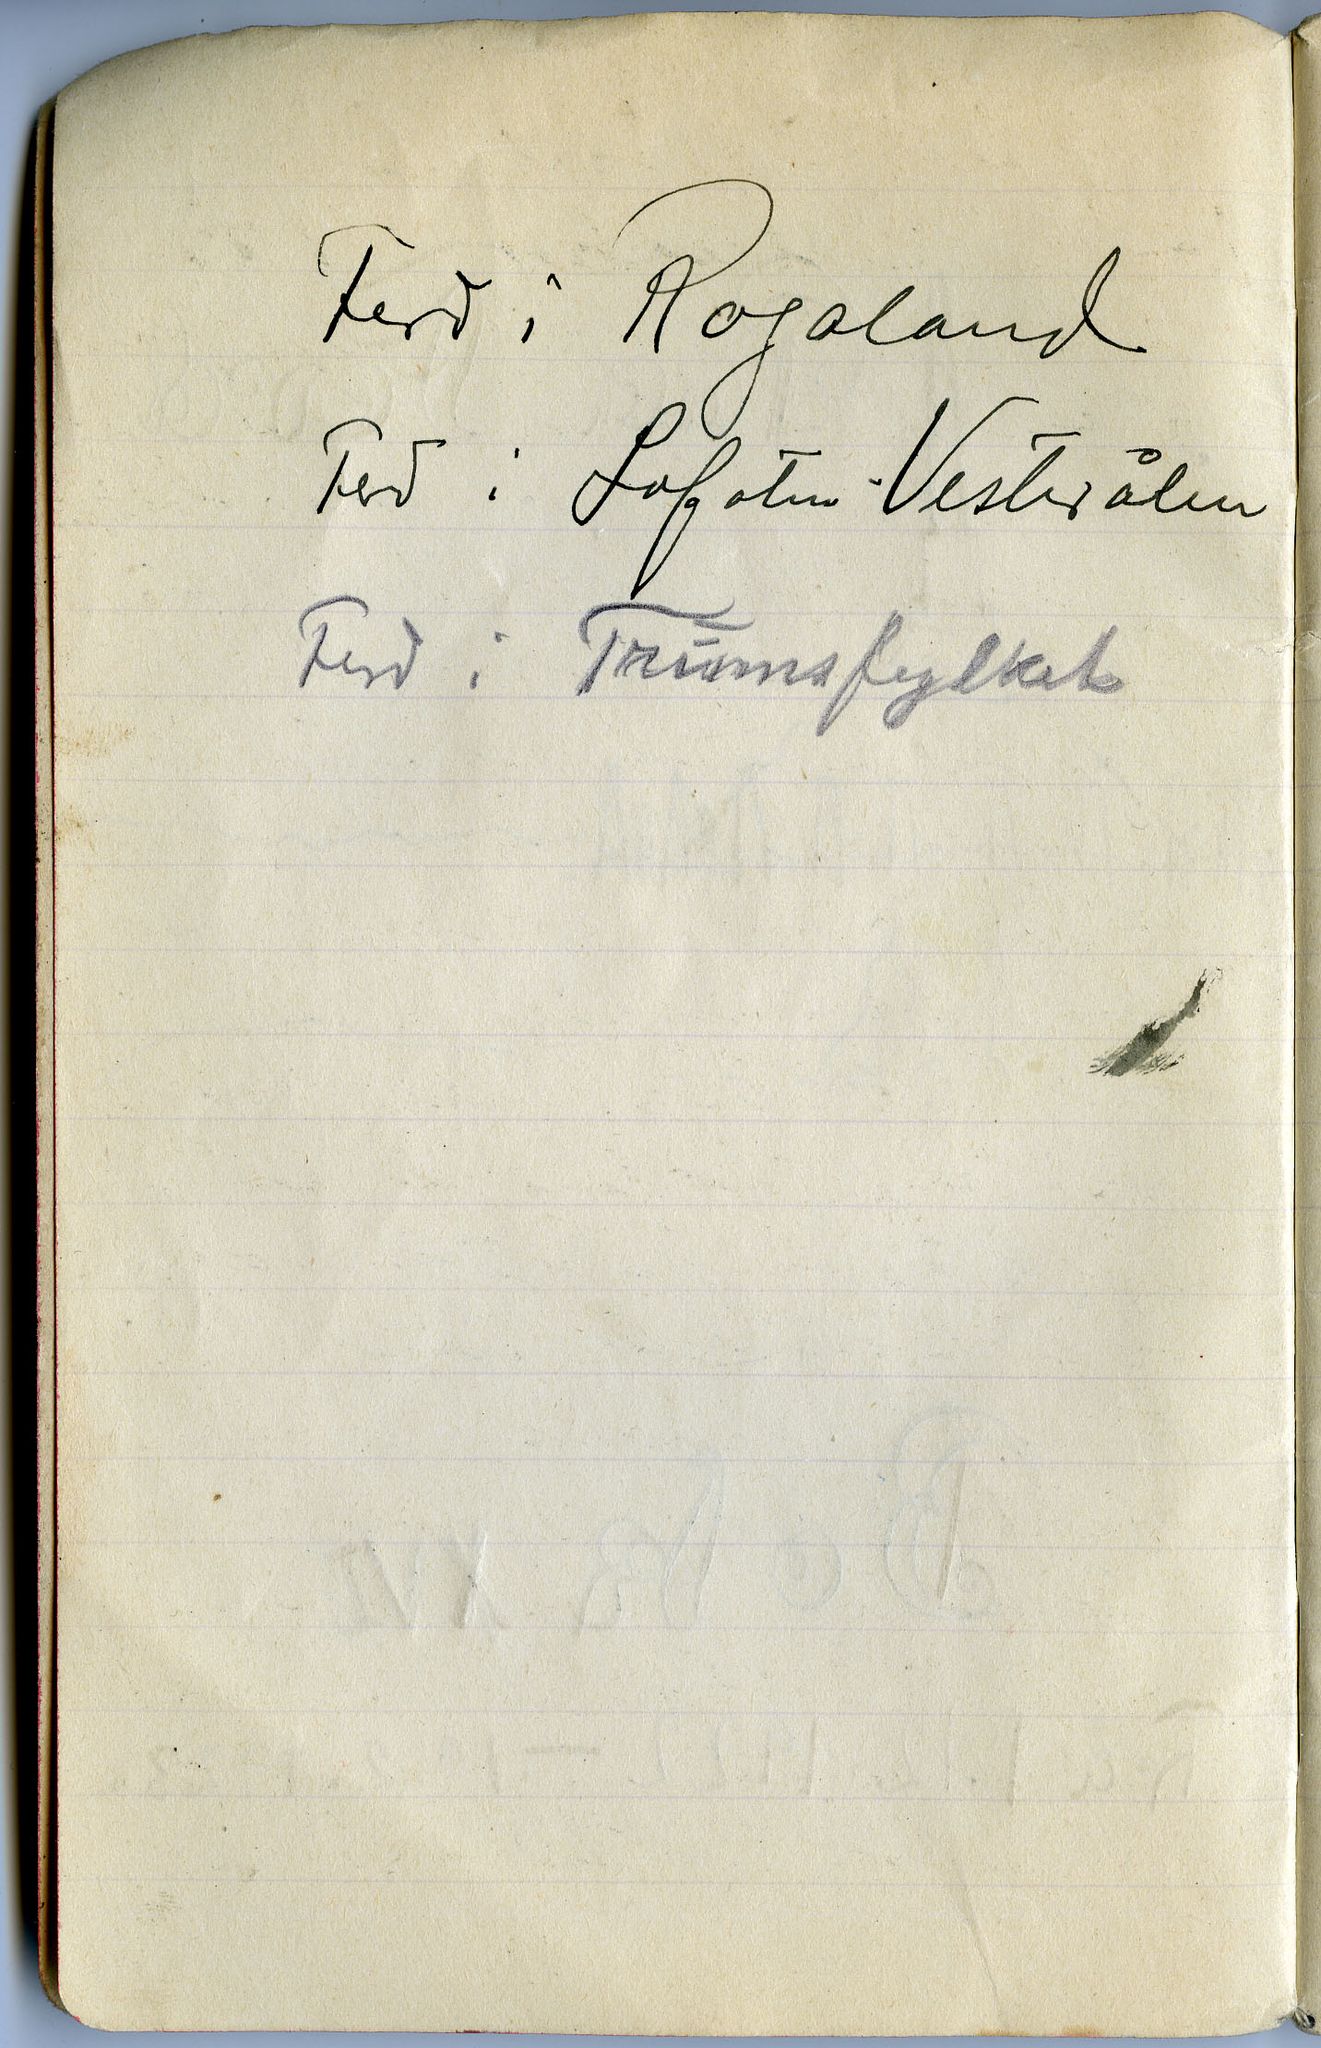 Ferd i Rogaland
Ferd i Lofoten-Vesterålen
Ferd i Trumsfylket